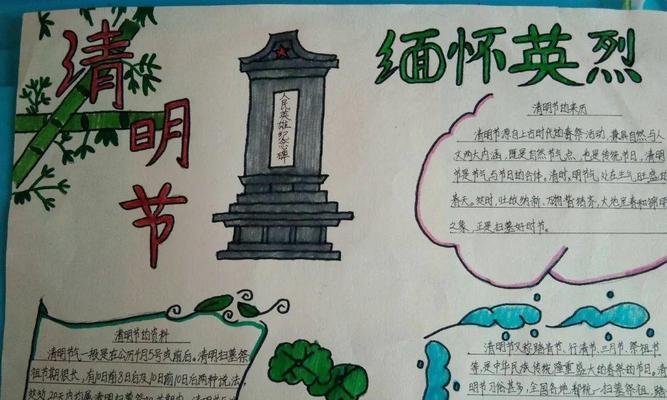 清明节
缅怀英烈
人民英雄纪念碑
清明节的来历
清明节源自上古时代的春祭活动,兼具自然与人
文两大内涵,既是自然节气点,也是传统节日,清明
节是节气与节日的合体。清时,明节气,处在生气旺盛的
春天。此时,吐故纳新、万物皆洁齐,大地呈春和景明
之象,正是扫墓好时节。
清明节的资料
清明节气一般是在公历4月5号或前后。清明扫墓祭
祖节期很长,有10日前8日后及10日前10日后两种说法,
清明节又称踏青节、行清节、三月节、祭祖节
等,是中华民族传统隆重盛大的春祭的节日。清
明节习俗甚多,全国各地都统一扫墓祭祖、踏